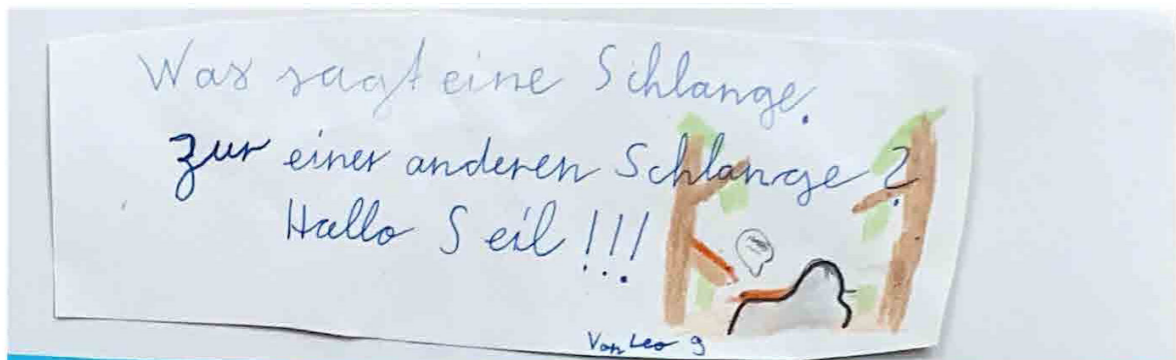 Was sagt eine Schlange.
zur einer anderen Schlange?
Hallo Seil!!!
Von Leo 9